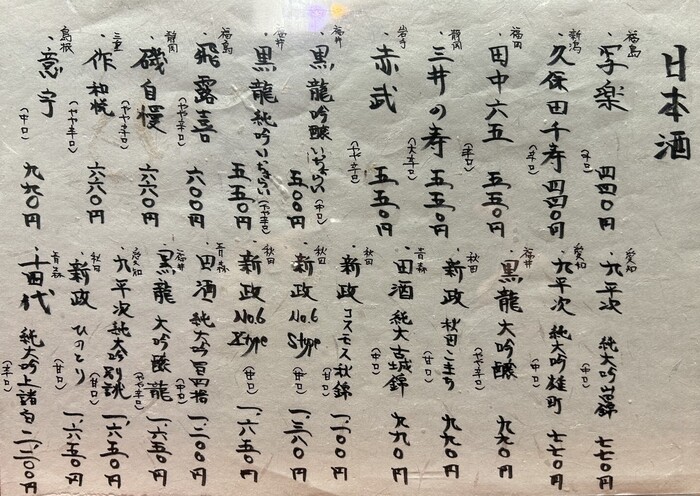 日本酒
福島
・写楽 (中口) 四四〇円
新潟
・久保田千寿 (辛口) 四四〇円
福岡
・田中六五 (辛口) 五五〇円
静岡
・三井の寿 (大辛口) 五五〇円
岩手
・赤武 (やや辛口) 五五〇円
福井
・黒龍 吟醸いっちょらい (中口) 五〇〇円
福井
・黒龍 純吟いっちょらい (やや辛口) 五五〇円
福島
・飛露喜 (やや辛口) 六〇〇円
静岡
・磯自慢 (やや辛口) 六六〇円
三重
・作 和悦 (やや辛口) 六六〇円
島根
・意宇 (中口) 九九〇円
愛知
・九平次 純大吟山田錦 (中口) 七七〇円
愛知
・九平次 純大吟雄町 (中口) 七七〇円
福井
・黒龍 大吟醸 (やや辛口) 九九〇円
秋田
・新政 秋田こまち (甘口) 九九〇円
青森
・田酒 純大古城錦 (中口) 九九〇円
秋田
・新政 コスモス秋錦 (甘口) 一、一〇〇円
秋田
・新政 No.6 Stype (中口) 一、三八〇円
秋田
・新政 No.6 Xtype (中口) 一、六五〇円
青森
・田酒 純大吟百四拾 (中口) 一、一〇〇円
福井
・黒龍 大吟醸 龍 (やや辛口) 一、六五〇円
愛知
・九平次 純大吟別誂 (甘口) 一、六五〇円
秋田
・新政 ひのとり (甘口) 一、六五〇円
・十四代 純大吟上諸白 (辛口) 二、二〇〇円